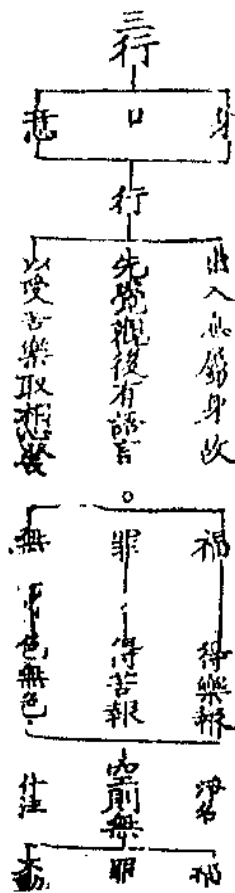 三行
身
口
意
行
出入息屬身故
先覺觀後有語言
以受苦樂取相想發
福
罪
無
得樂報
得苦報
色無色
淨名
空前無
什注
福
罪
不動